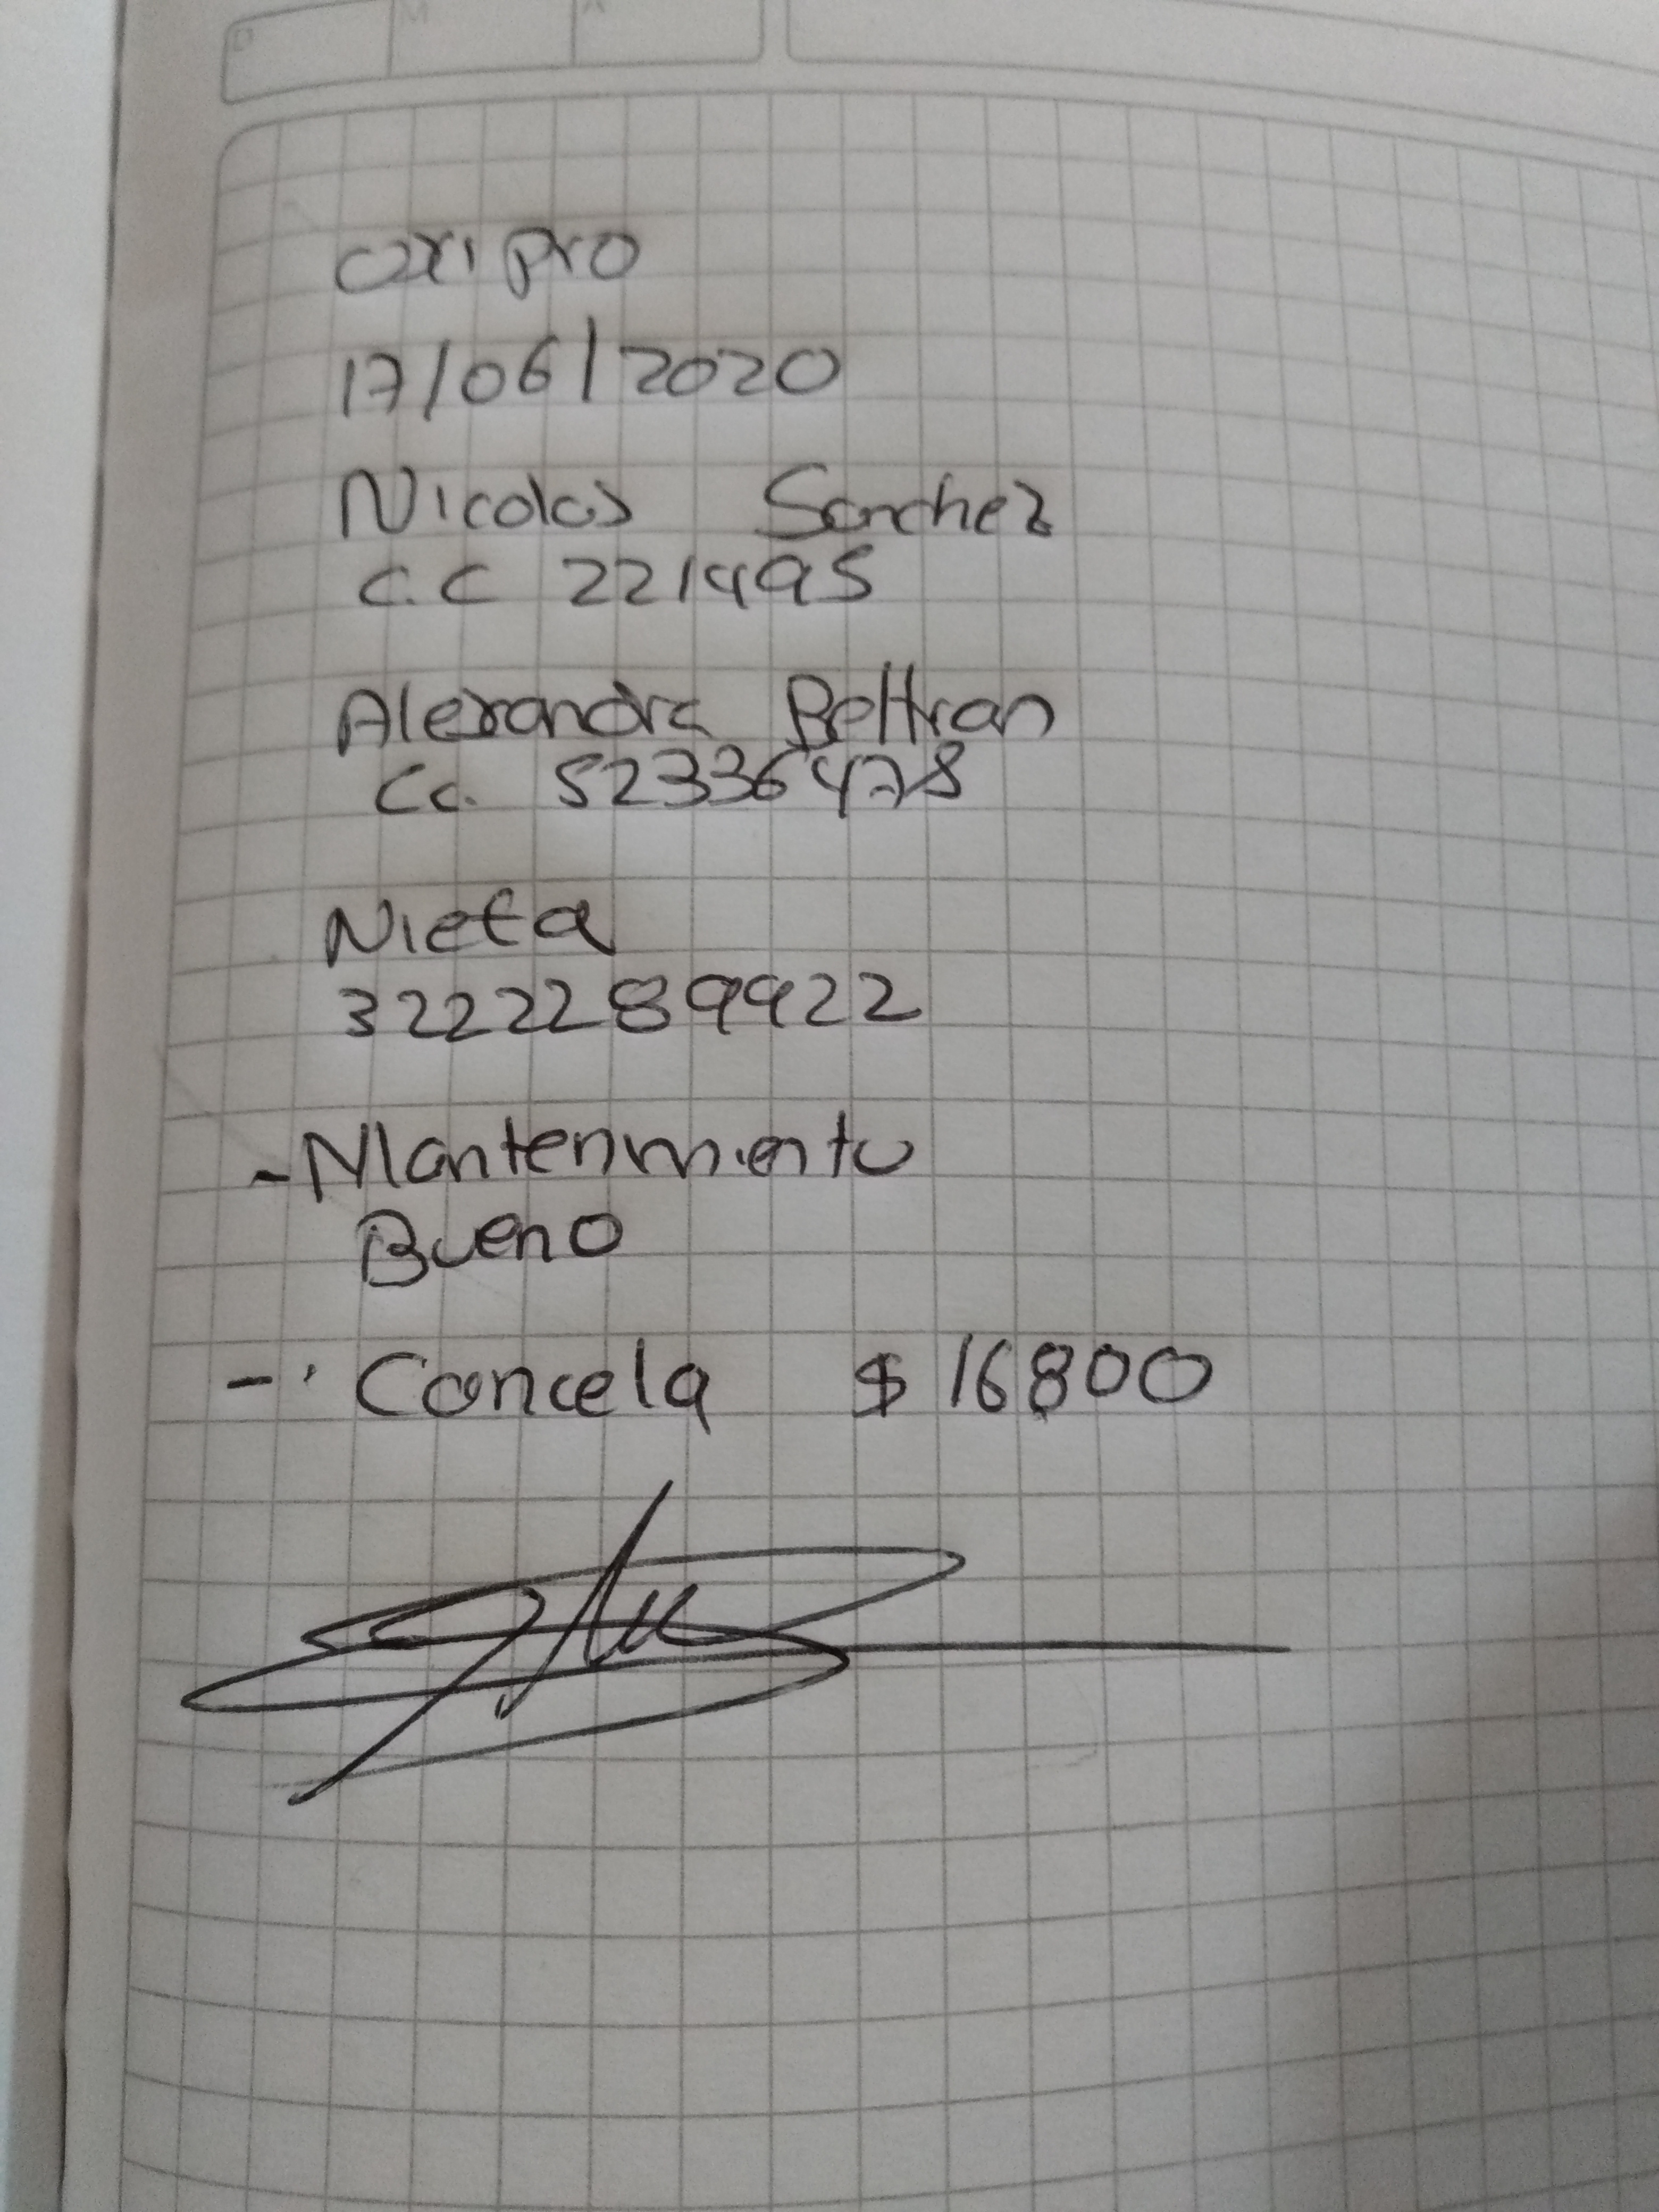 D M A
Oxi pro
17/06/2020
Nicolas Sanchez
C.C 221495
Alexandra Beltran
Cc. 52336478
Nieta
3222289922
- Mantenimiento
Bueno
- Cancela $ 16800